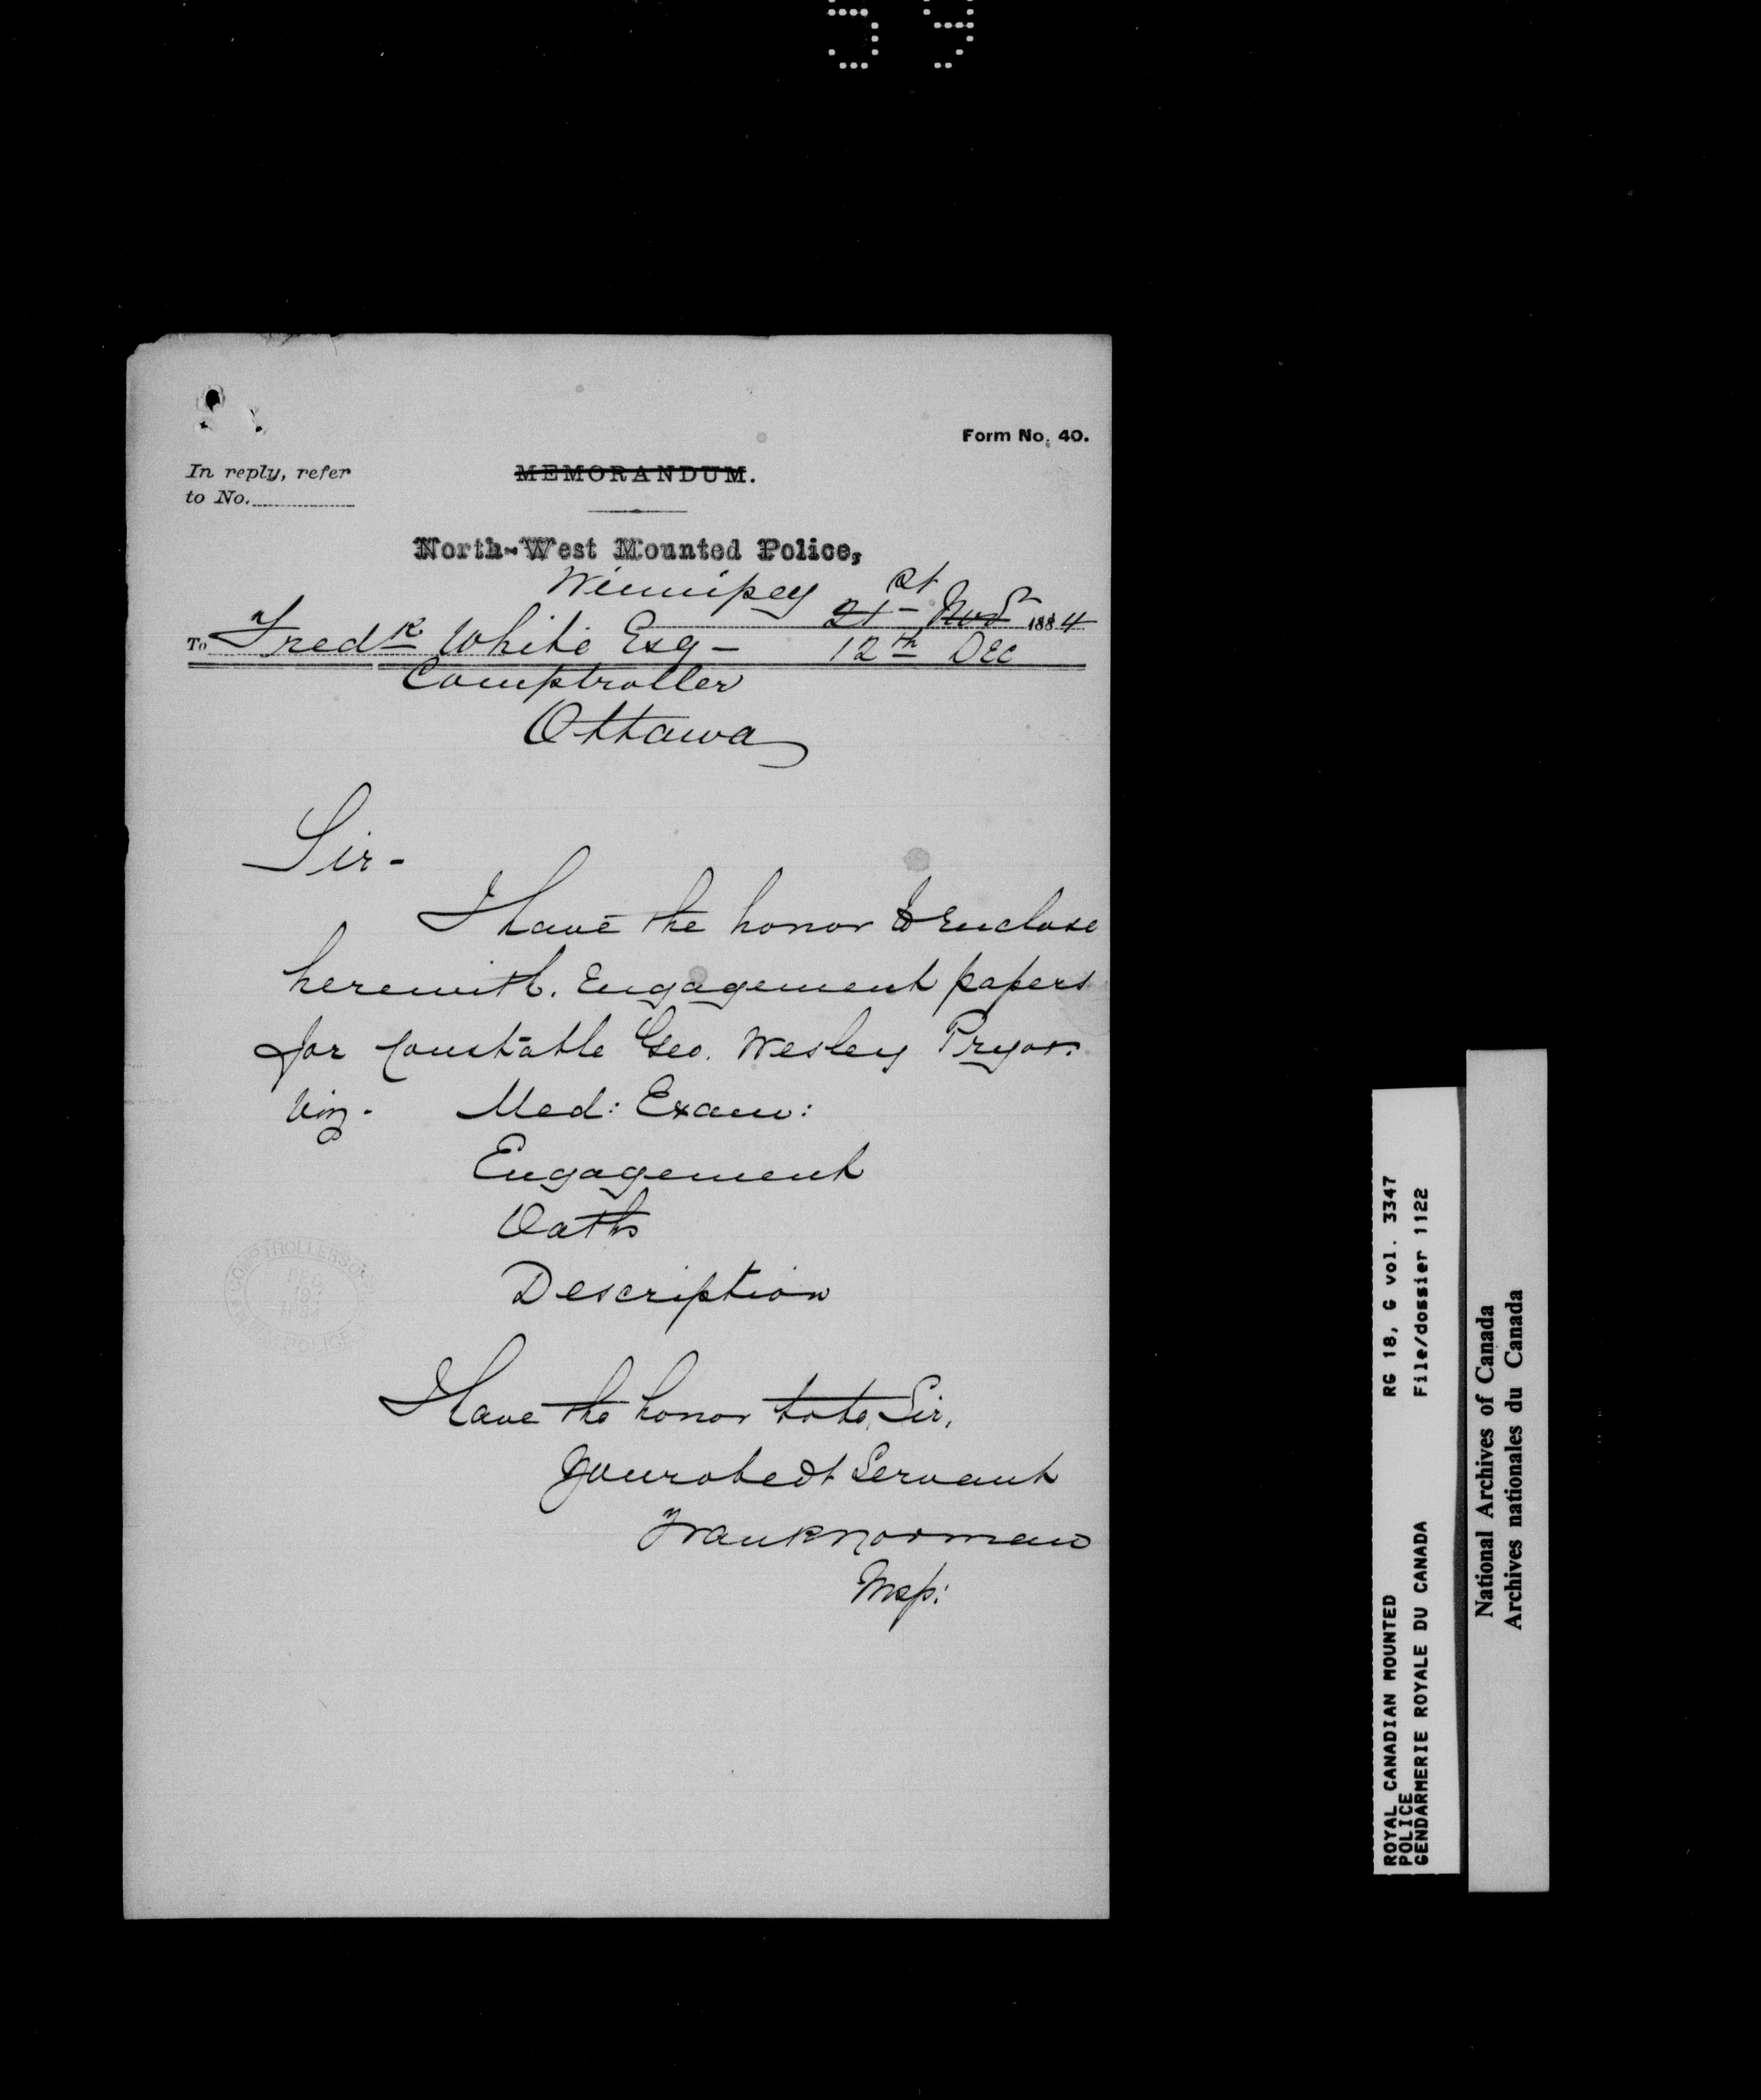 Form No. 40.
In reply, refer
to No.
MEMORANDUM.
North-West Mounted Police,
Winnipeg 21st Novr 1884
12th Dec
To Fredk White Esq -
Comptroller
Ottawa
Sir -
I have the honor to Enclose
herewith. Engagement papers
for Constable Geo. Wesley Pryor.
Viz - Med: Exam:
Engagement
Oaths
Description
I have the honor to be, Sir,
Your obedt Servant
Frank Norman
Insp:
COMPTROLLERS
DEC
19
1884
POLICE
ROYAL CANADIAN MOUNTED
POLICE
GENDARMERIE ROYALE DU CANADA
RG 18, G vol. 3347
File/dossier 1122
National Archives of Canada
Archives nationales du Canada